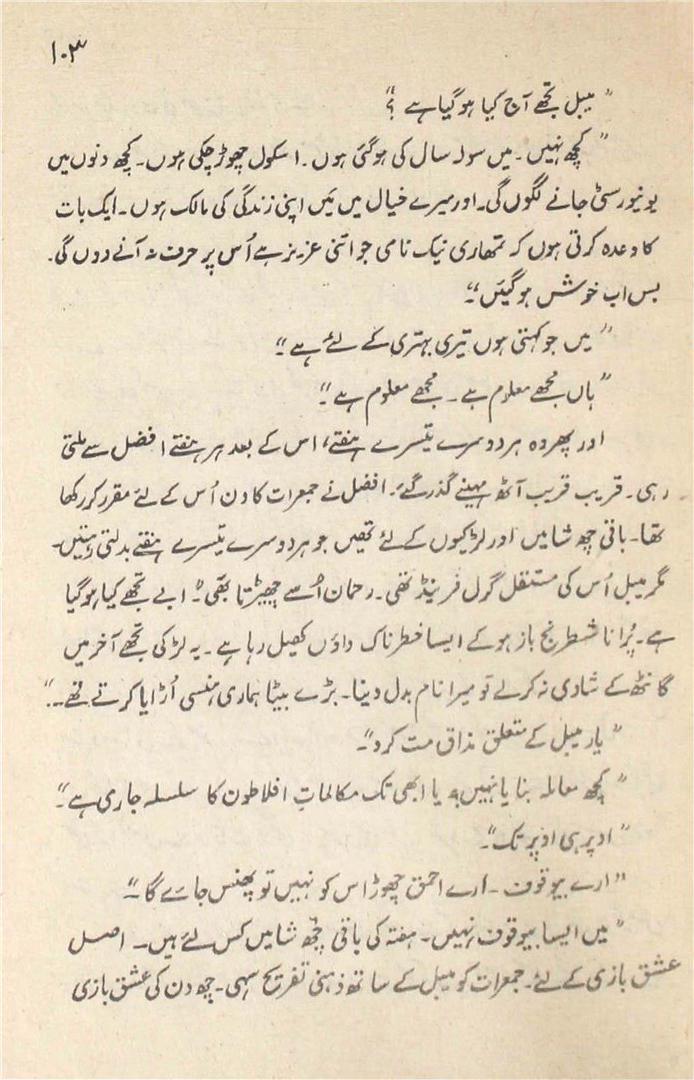 ۱۰۳
"میبل تجھے آج کیا ہو گیا ہے ؟"
"کچھ نہیں۔ میں سولہ سال کی ہو گئی ہوں۔ اسکول چھوڑ چکی ہوں۔ کچھ دنوں میں
یونیورسٹی جانے لگوں گی۔ اور میرے خیال میں مَیں اپنی زندگی کی مالک ہوں۔ ایک بات
کا وعدہ کرتی ہوں کہ تمھاری نیک نامی جو اتنی عزیز ہے اُس پر حرف نہ آنے دوں گی۔
بس اب خوش ہو گئیں"۔
"میں جو کہتی ہوں تیری بہتری کے لئے ہے"۔
"ہاں مجھے معلوم ہے۔ مجھے معلوم ہے"۔
اور پھر وہ ہر دوسرے تیسرے ہفتے، اس کے بعد ہر ہفتے افضل سے ملتی
رہی۔ قریب قریب آٹھ مہینے گذر گئے۔ افضل نے جمعرات کا دن اُس کے لئے مقرر کر رکھا
تھا۔ باقی چھ شامیں اور لڑکیوں کے لئے تھیں جو ہر دوسرے تیسرے ہفتے بدلتی رہتیں۔
مگر میبل اُس کی مستقل گرل فرینڈ تھی۔ رحمان اُسے چھیڑتا بھی "ابے تجھے کیا ہو گیا
ہے۔ پُرانا شطرنج باز ہو کے ایسا خطرناک داؤں کھیل رہا ہے۔ یہ لڑکی تجھے آخر میں
گانٹھ کے شادی نہ کر لے تو میرا نام بدل دینا۔ بڑے بیٹا ہماری ہنسی اُڑایا کرتے تھے۔"
"یار میبل کے متعلق مذاق مت کرو"۔
"کچھ معاملہ بنا یا نہیں؟ یا ابھی تک مکالماتِ افلاطون کا سلسلہ جاری ہے"۔
"اوپر ہی اوپر تک"۔
"ارے بیوقوف ۔ ارے احمق چھوڑ اس کو نہیں تو پھنس جائے گا"۔
"میں ایسا بیوقوف نہیں۔ ہفتہ کی باقی چھ شامیں کس لئے ہیں۔ اصل
عشق بازی کے لئے۔ جمعرات کو میبل کے ساتھ ذہنی تفریح سہی۔ چھ دن کی عشق بازی